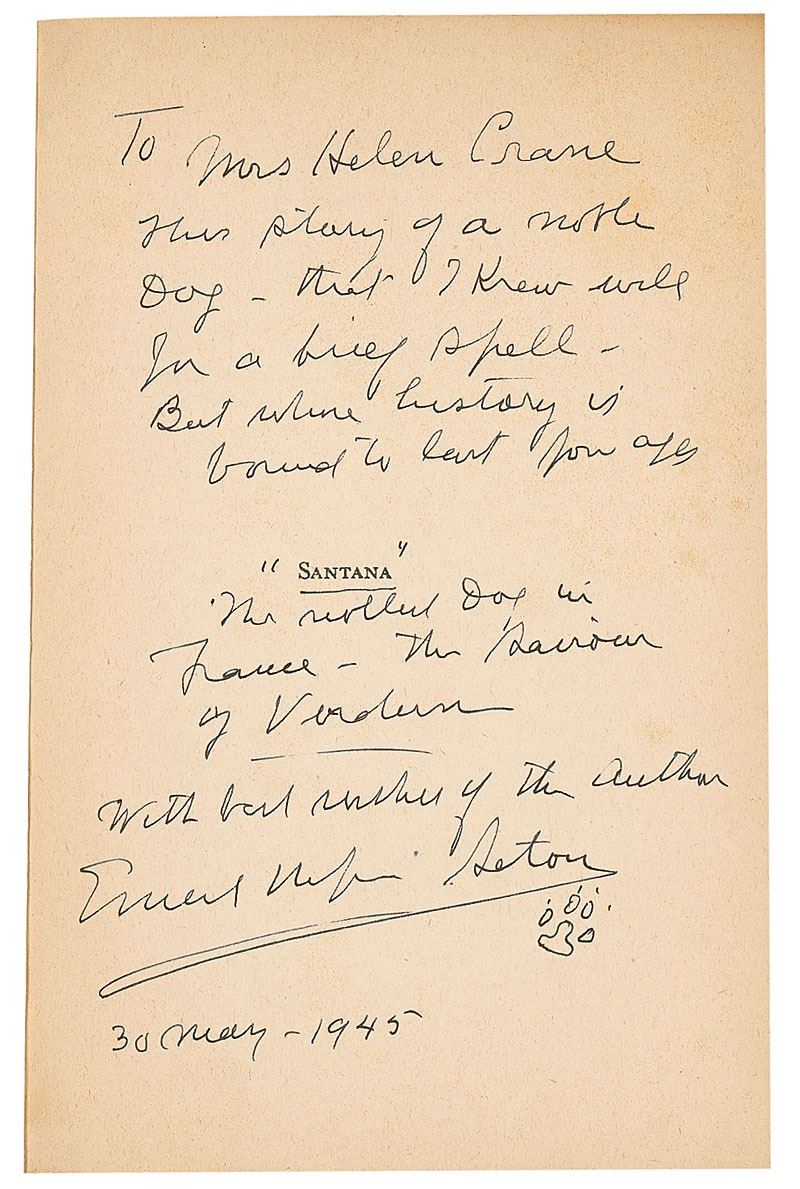 To Mrs Helen Crane
this story of a noble
Dog – that I Knew well
for a brief spell –
But whose history is
bound to last for ages
"SANTANA"
The noblest Dog in
France – the Saviour
of Verdun
With best wishes of the Author
Ernest Thompson Seton
30 May – 1945